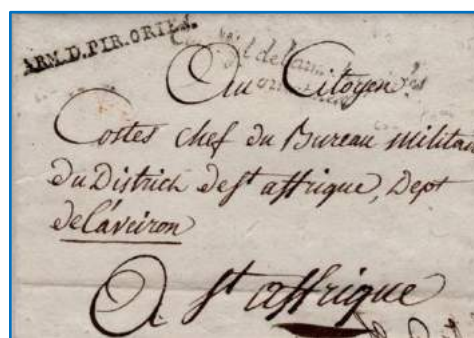 ARM.D.PIR.ORIEN.
Au Citoyen
Costes chef du Bureau militai
du District de St affrique, Dept
de l'aveiron
A St affrique